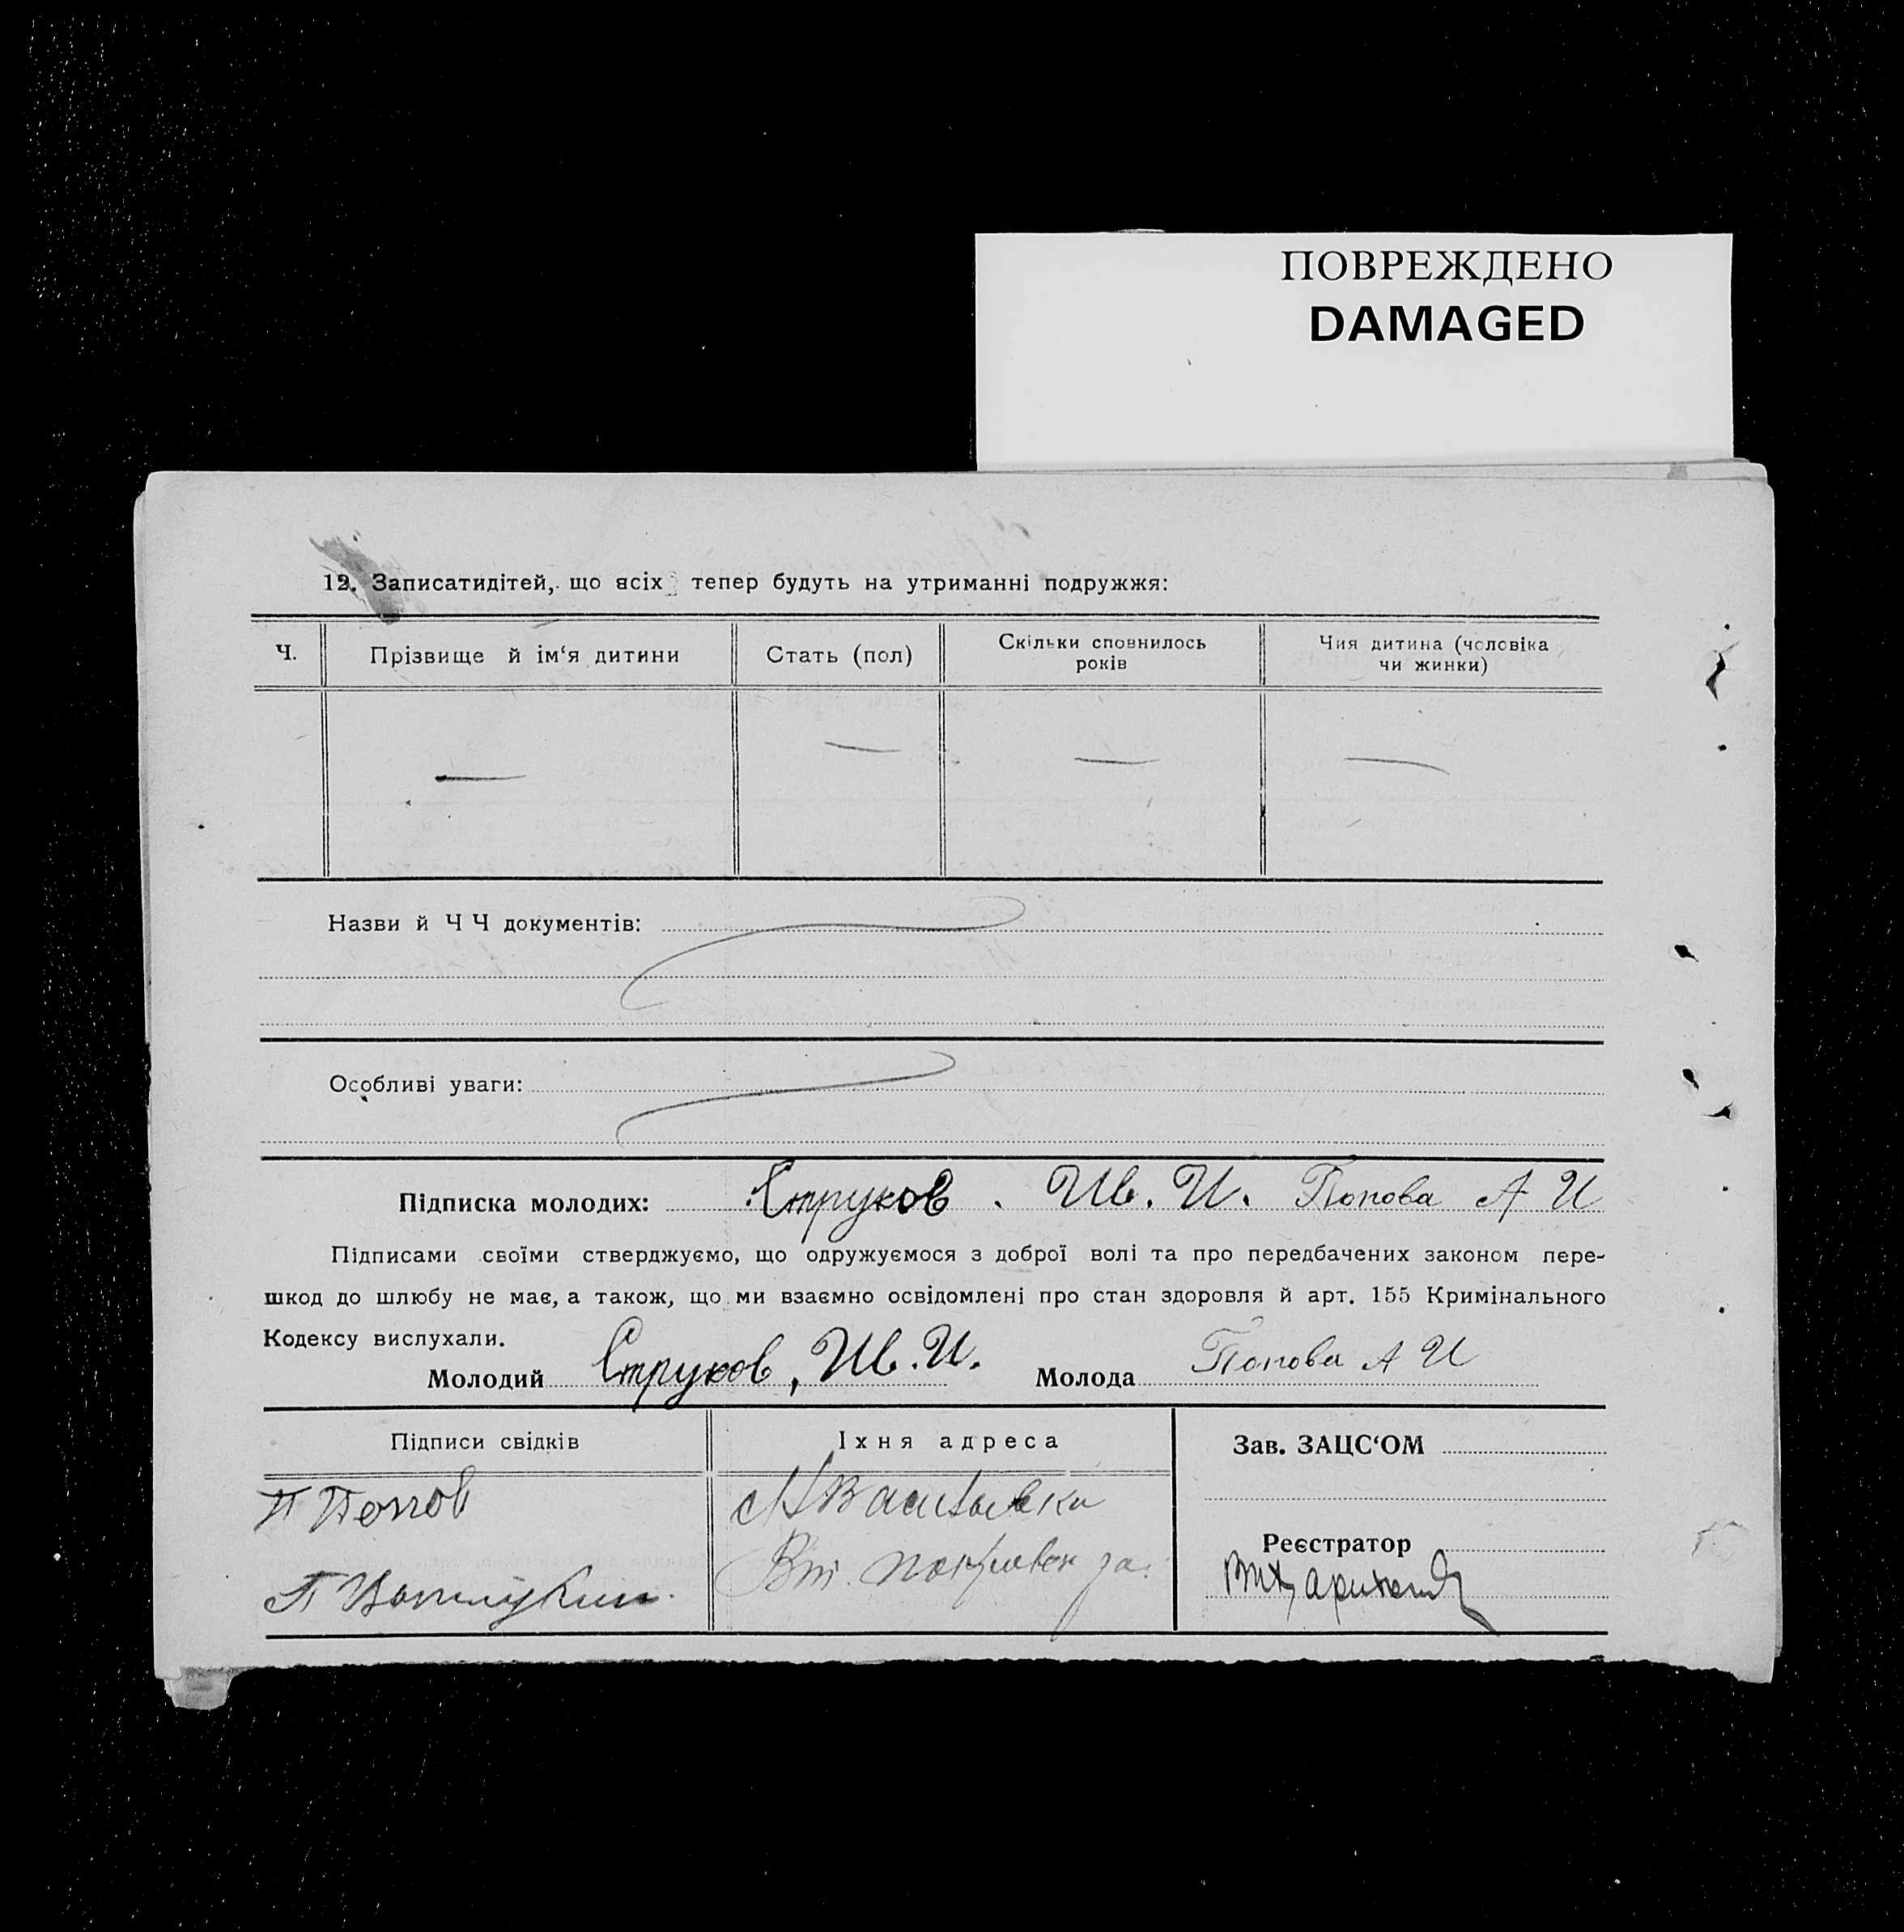 ПОВРЕЖДЕНО
DAMAGED
12. Записатидітей, що всіх тепер будуть на утриманні подружжя:
Ч. Прізвище й ім‘я дитини Стать (пол) Скільки сповнилось років Чия дитина (чоловіка чи жинки)
— — — —
Назви й Ч Ч документів:
Особливі уваги:
Підписка молодих: Струков. Ив. И. Попова А И
Підписами своїми стверджуємо, що одружуємося з доброї волі та про передбачених законом пере-
шкод до шлюбу не має, а також, що ми взаємно освідомлені про стан здоровля й арт. 155 Кримінального
Кодексу вислухали.
Молодий Струков, Ив. И. Молода Попова А И
Підписи свідків Їхня адреса Зав. ЗАЦС‘ОМ
П Попов
Реєстратор